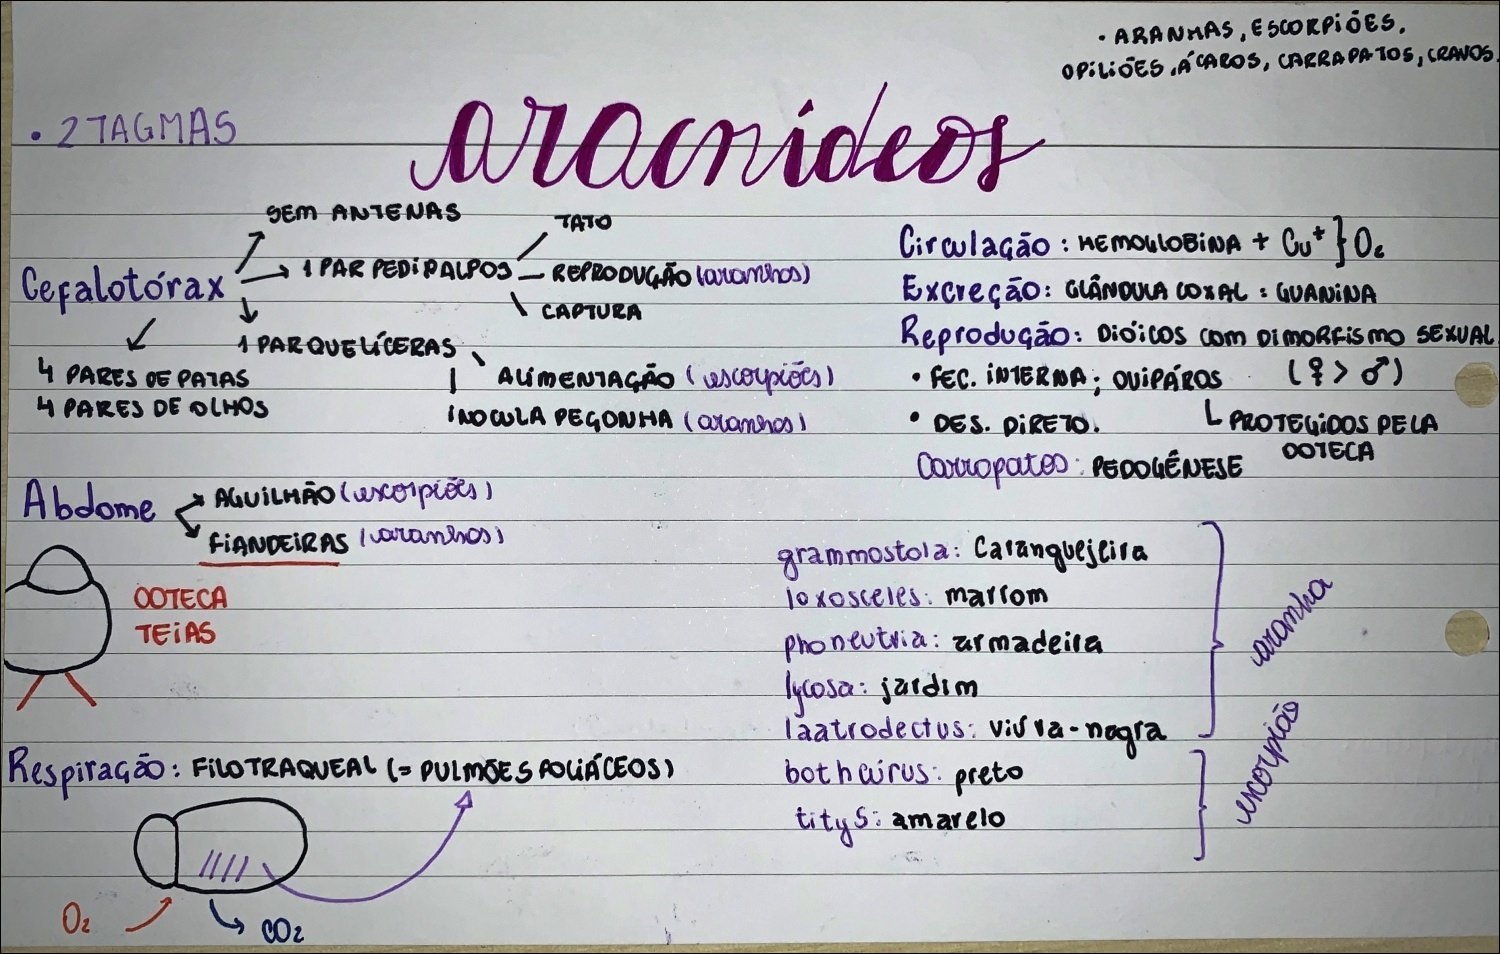 • ARANHAS, ESCORPIÕES,
OPILIÕES, ÁCAROS, CARRAPATOS, CRAVOS.
aracnídeos
• 2 TAGMAS
Cefalotórax
SEM ANTENAS
1 PAR PEDIPALPOS
TATO
REPRODUÇÃO (aranhas)
CAPTURA
1 PAR QUELÍCERAS
ALIMENTAÇÃO (escorpiões)
INOCULA PEÇONHA (aranhas)
4 PARES DE PATAS
4 PARES DE OLHOS
Abdome
AGUILHÃO (escorpiões)
FIANDEIRAS (aranhas)
OOTECA
TEIAS
Respiração: FILOTRAQUEAL (= PULMÕES FOLIÁCEOS)
O₂
CO₂
Circulação: HEMOGLOBINA + Cu⁺ } O₂
Excreção: GLÂNDULA COXAL: GUANINA
Reprodução: DIÓICOS COM DIMORFISMO SEXUAL
(♀ > ♂)
• FEC. INTERNA; OVIPÁROS
PROTEGIDOS PELA
OOTECA
• DES. DIRETO.
Carrapatos: PEDOGÊNESE
grammostola: Caranguejeira
loxosceles: marrom
phoneutria: armadeira
lycosa: jardim
laatrodectus: viúva-negra
aranha
bothuirus: preto
tityS: amarelo
escorpião